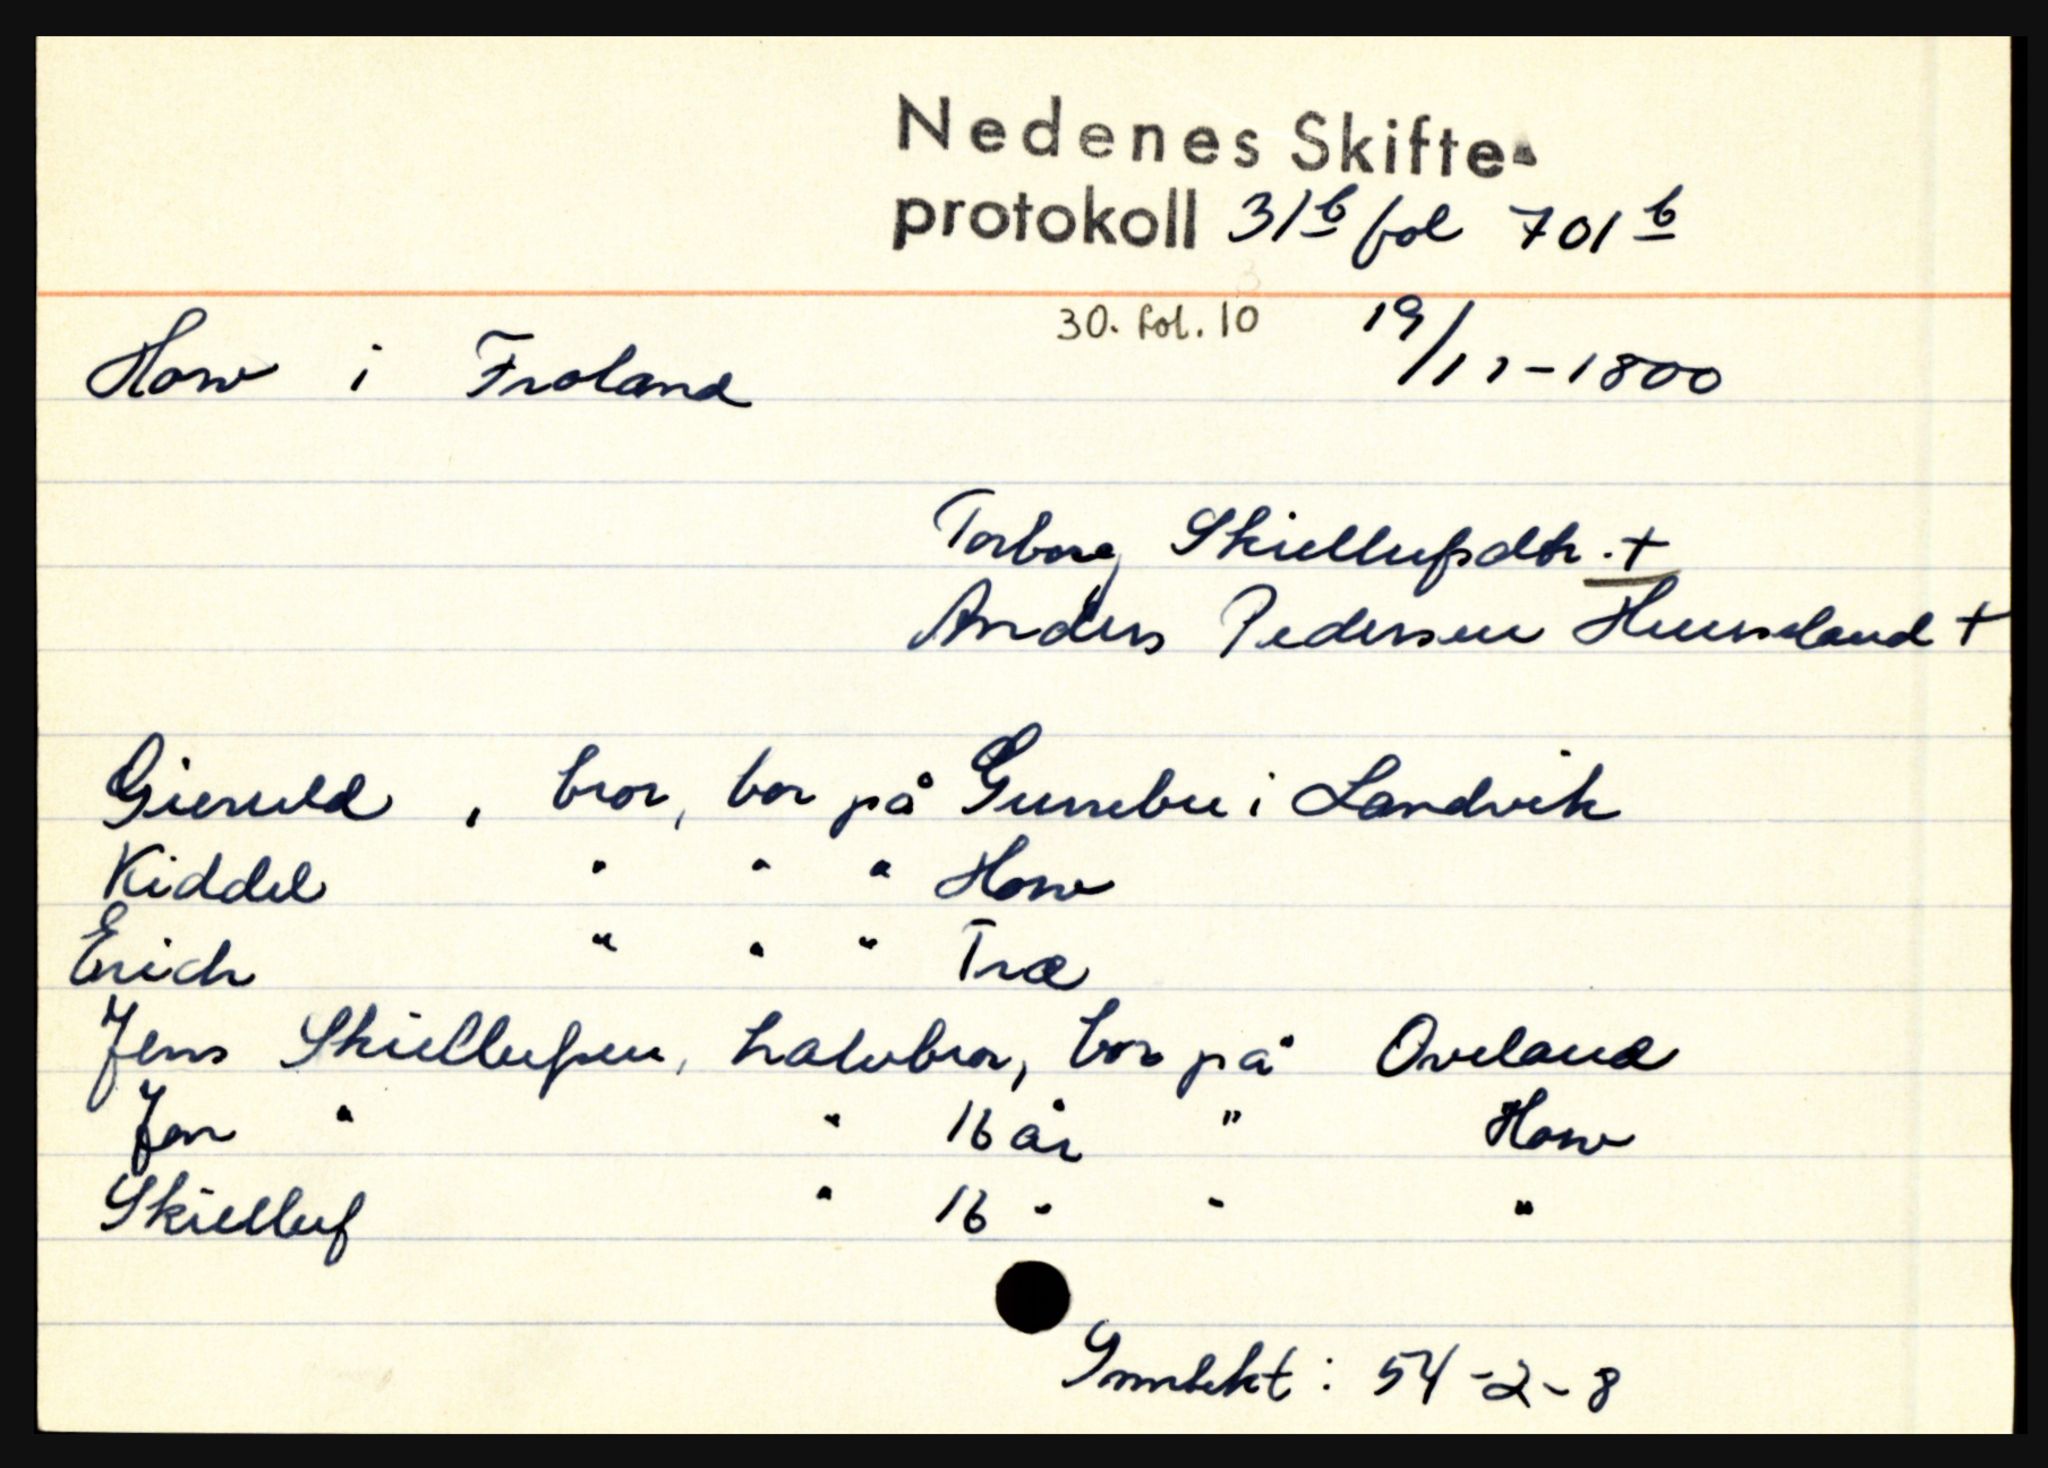 Nedenes Skifte-
protokoll 31b fol 701b
30. fol. 10 19/12-1800
How i Froland
Torborg Skiellufsdtr. +
Anders Pedersen Huuseland +
Gieruld, bror, bor på Gunebu i Landvik
Kiddel " " " How
Erich " " " Træ
Jens Skiellufsen, halvbror, bor på Oveland
Jon " " 16 år " How
Skielluf " 16 " " "
Inntekt: 54-2-8